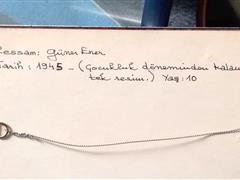 Ressam: Güner Ener
Tarih: 1945 - (Çocukluk döneminden kalan
tek resim.) Yaş: 10